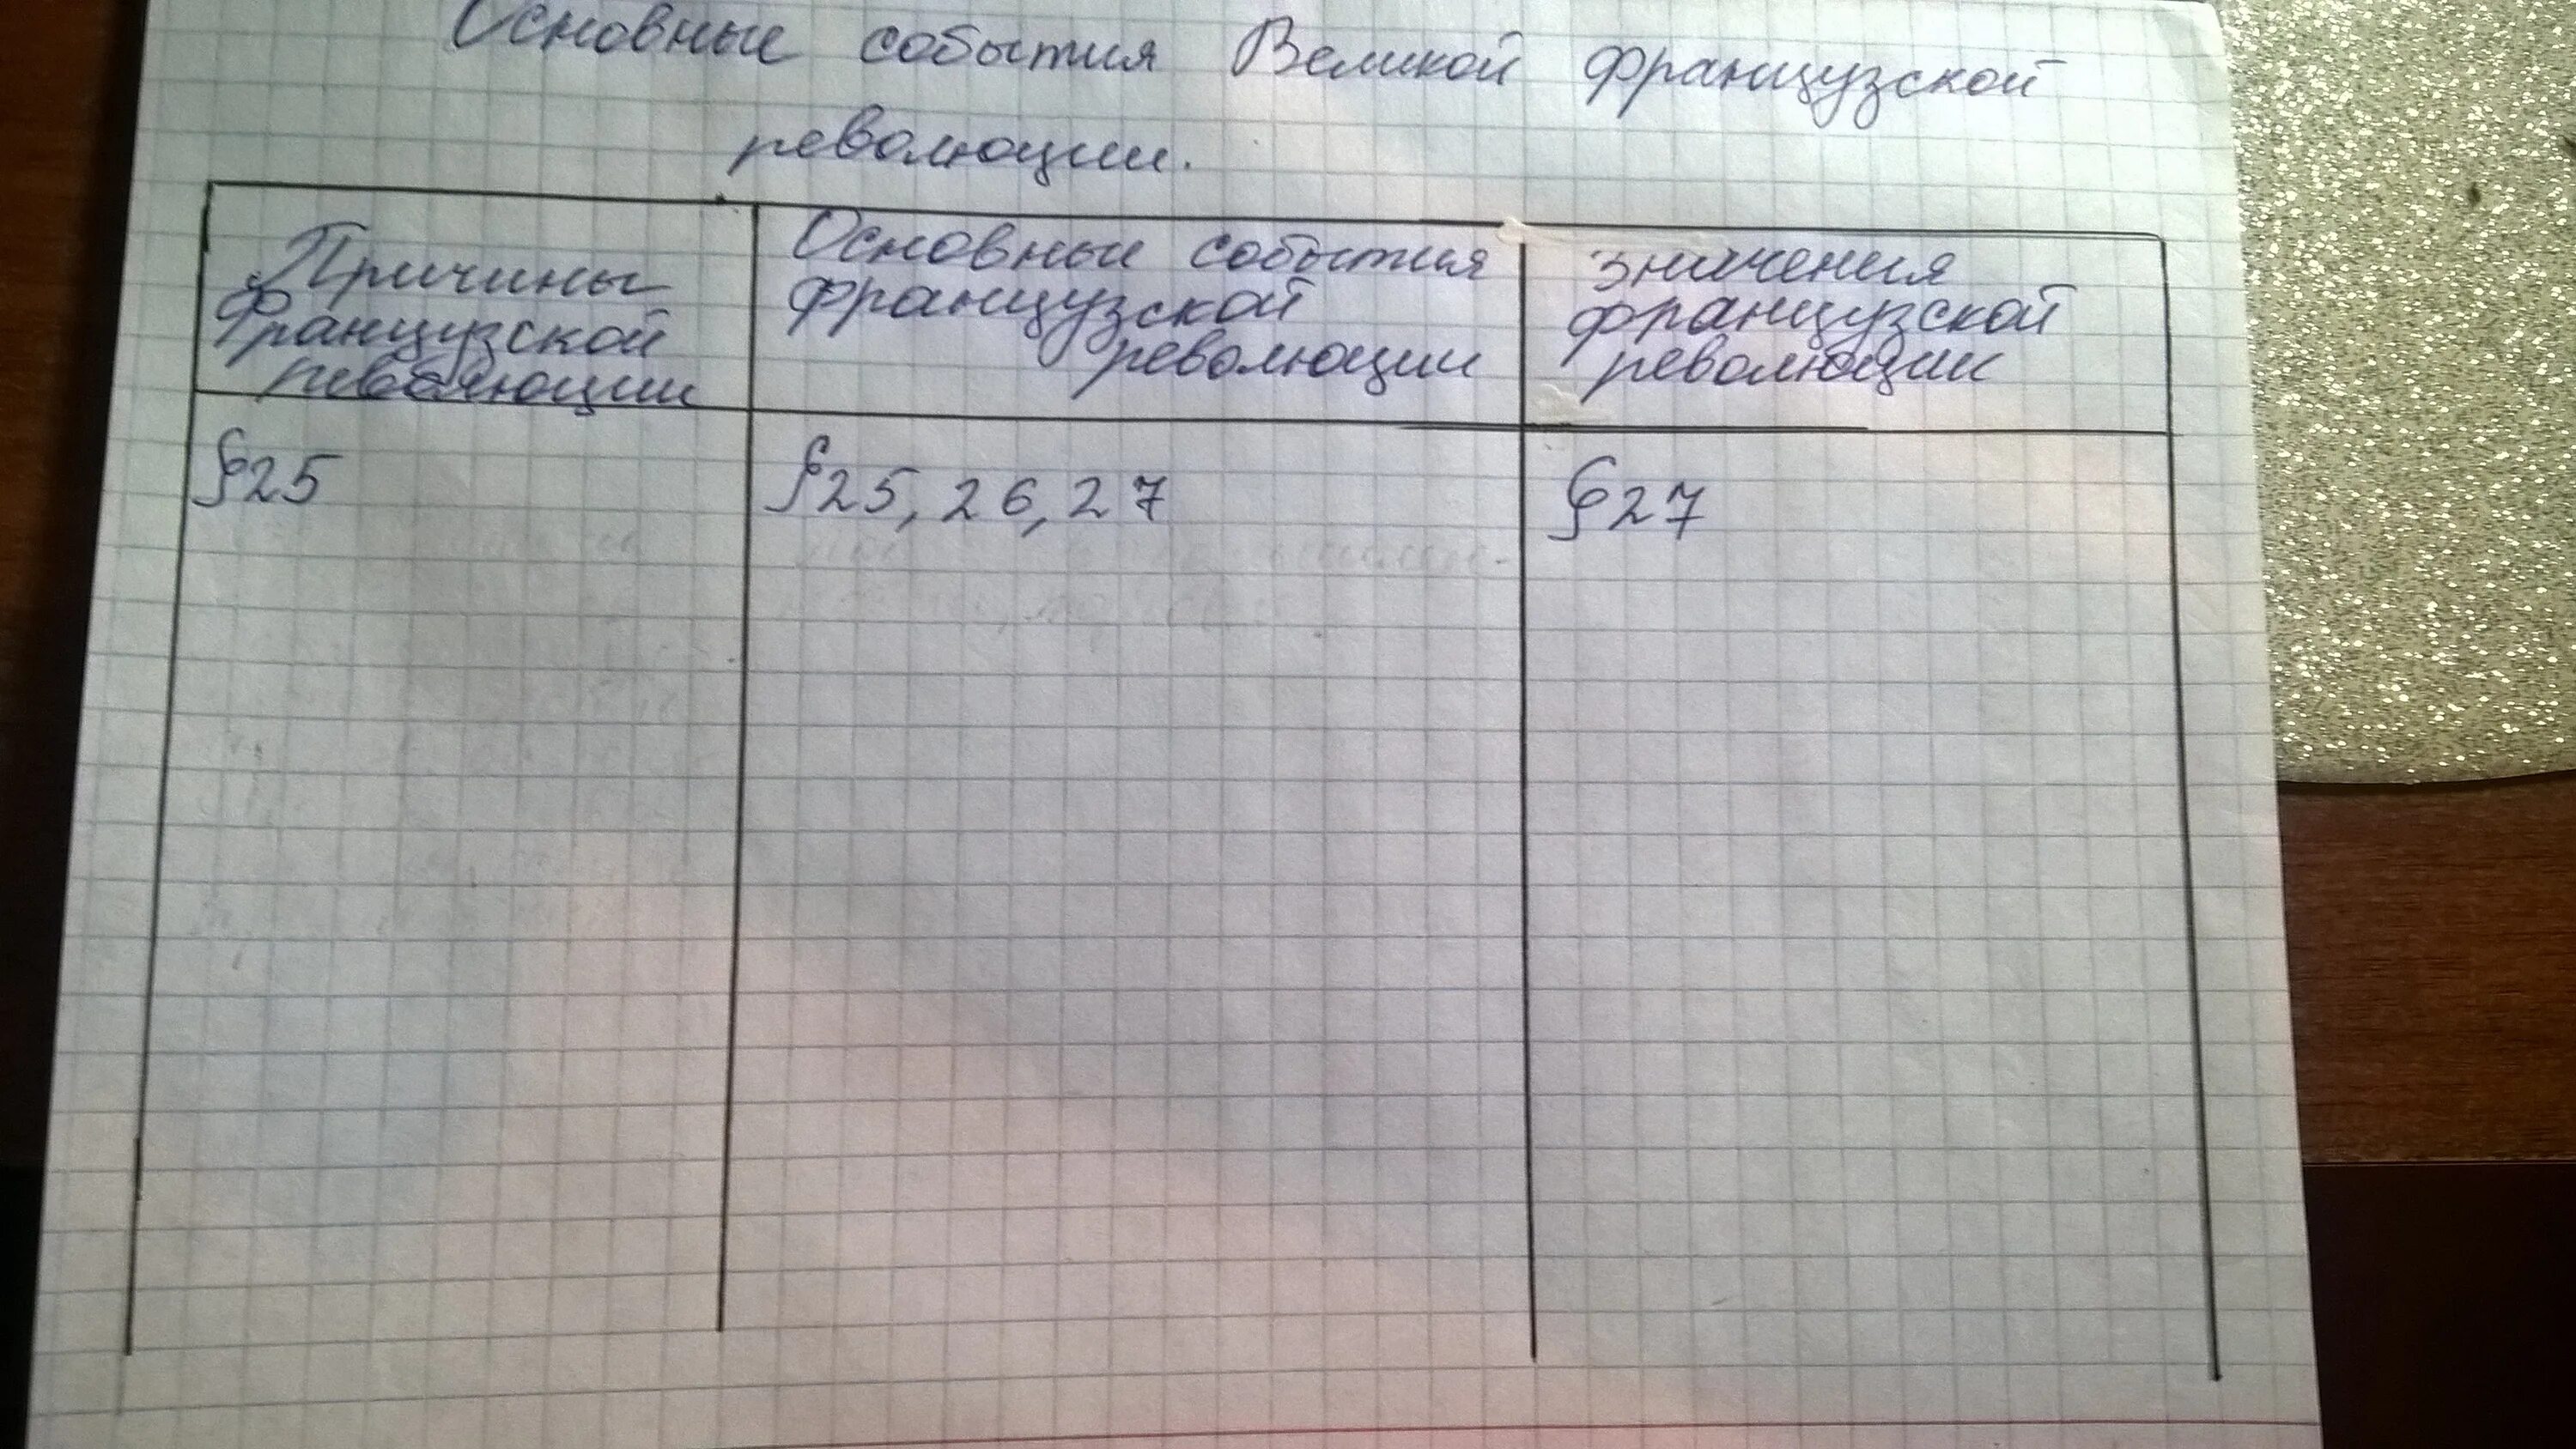 Основные события Великой французской
революции.
Причины
Французской
революции
Основные события
французской
революции
значения
французской
революции
§25
§25, 26, 27
§27